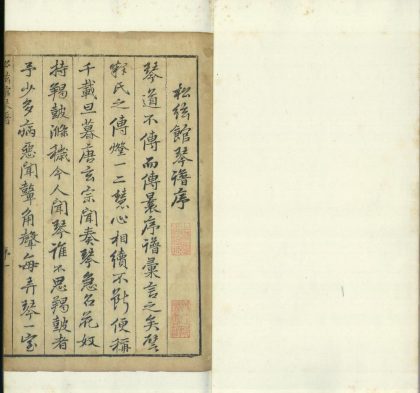 松絃館琴譜序
琴道不傳而傳曩序譜彙言之矣譬
釋氏之傳燈一二慧心相續不斷便稱
千載旦暮唐玄宗聞奏琴急召花奴
持羯鼓滌穢今人聞琴誰不思羯鼓者
予少多病惡聞鼙角聲每弄琴一室